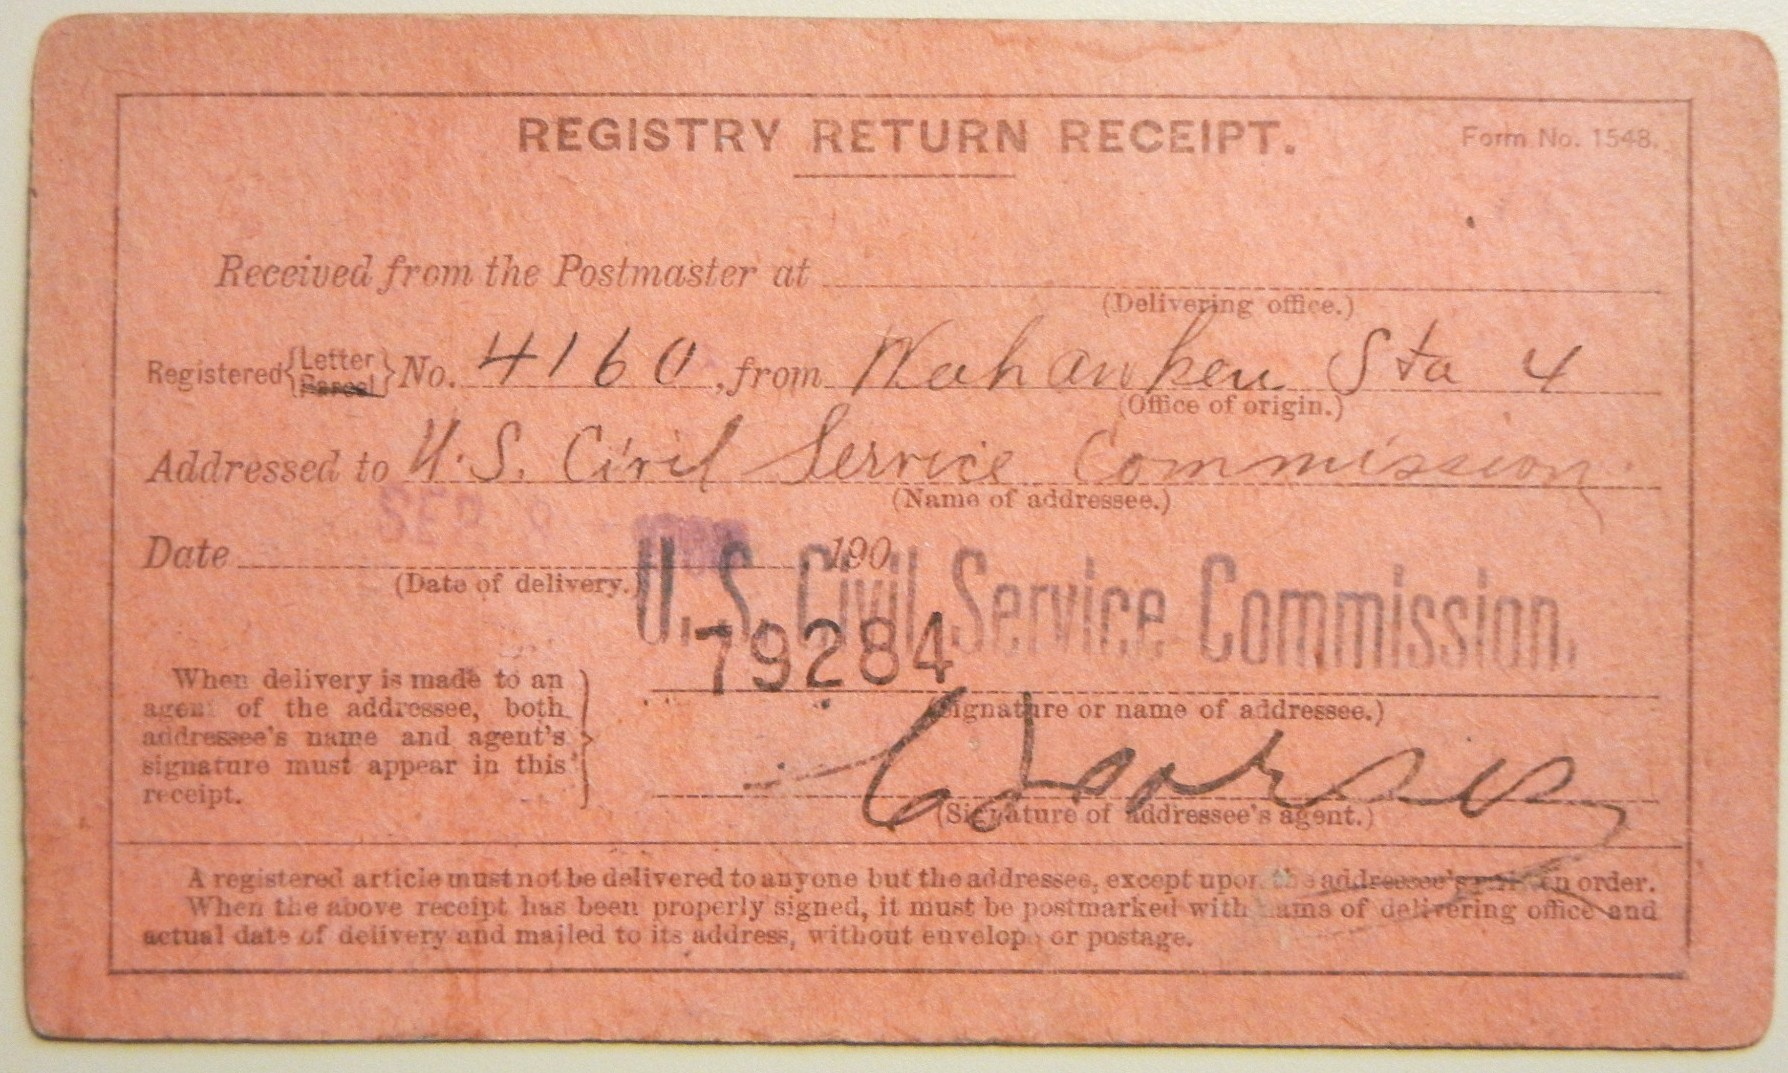 REGISTRY RETURN RECEIPT.
Form No. 1548.
Received from the Postmaster at
(Delivering office.)
Registered { Letter Parcel } No. 4160, from Wahawken Sta 4
(Office of origin.)
Addressed to U.S. Civil Service Commission
(Name of addressee.)
SEP
Date 190
(Date of delivery.)
U. S. Civil Service Commission.
79284
(Signature or name of addressee.)
When delivery is made to an
agent of the addressee, both
addressee's name and agent's
signature must appear in this
receipt.
(Signature of addressee's agent.)
A registered article must not be delivered to anyone but the addressee, except upon the addressee's written order.
When the above receipt has been properly signed, it must be postmarked with name of delivering office and
actual date of delivery and mailed to its address, without envelope or postage.